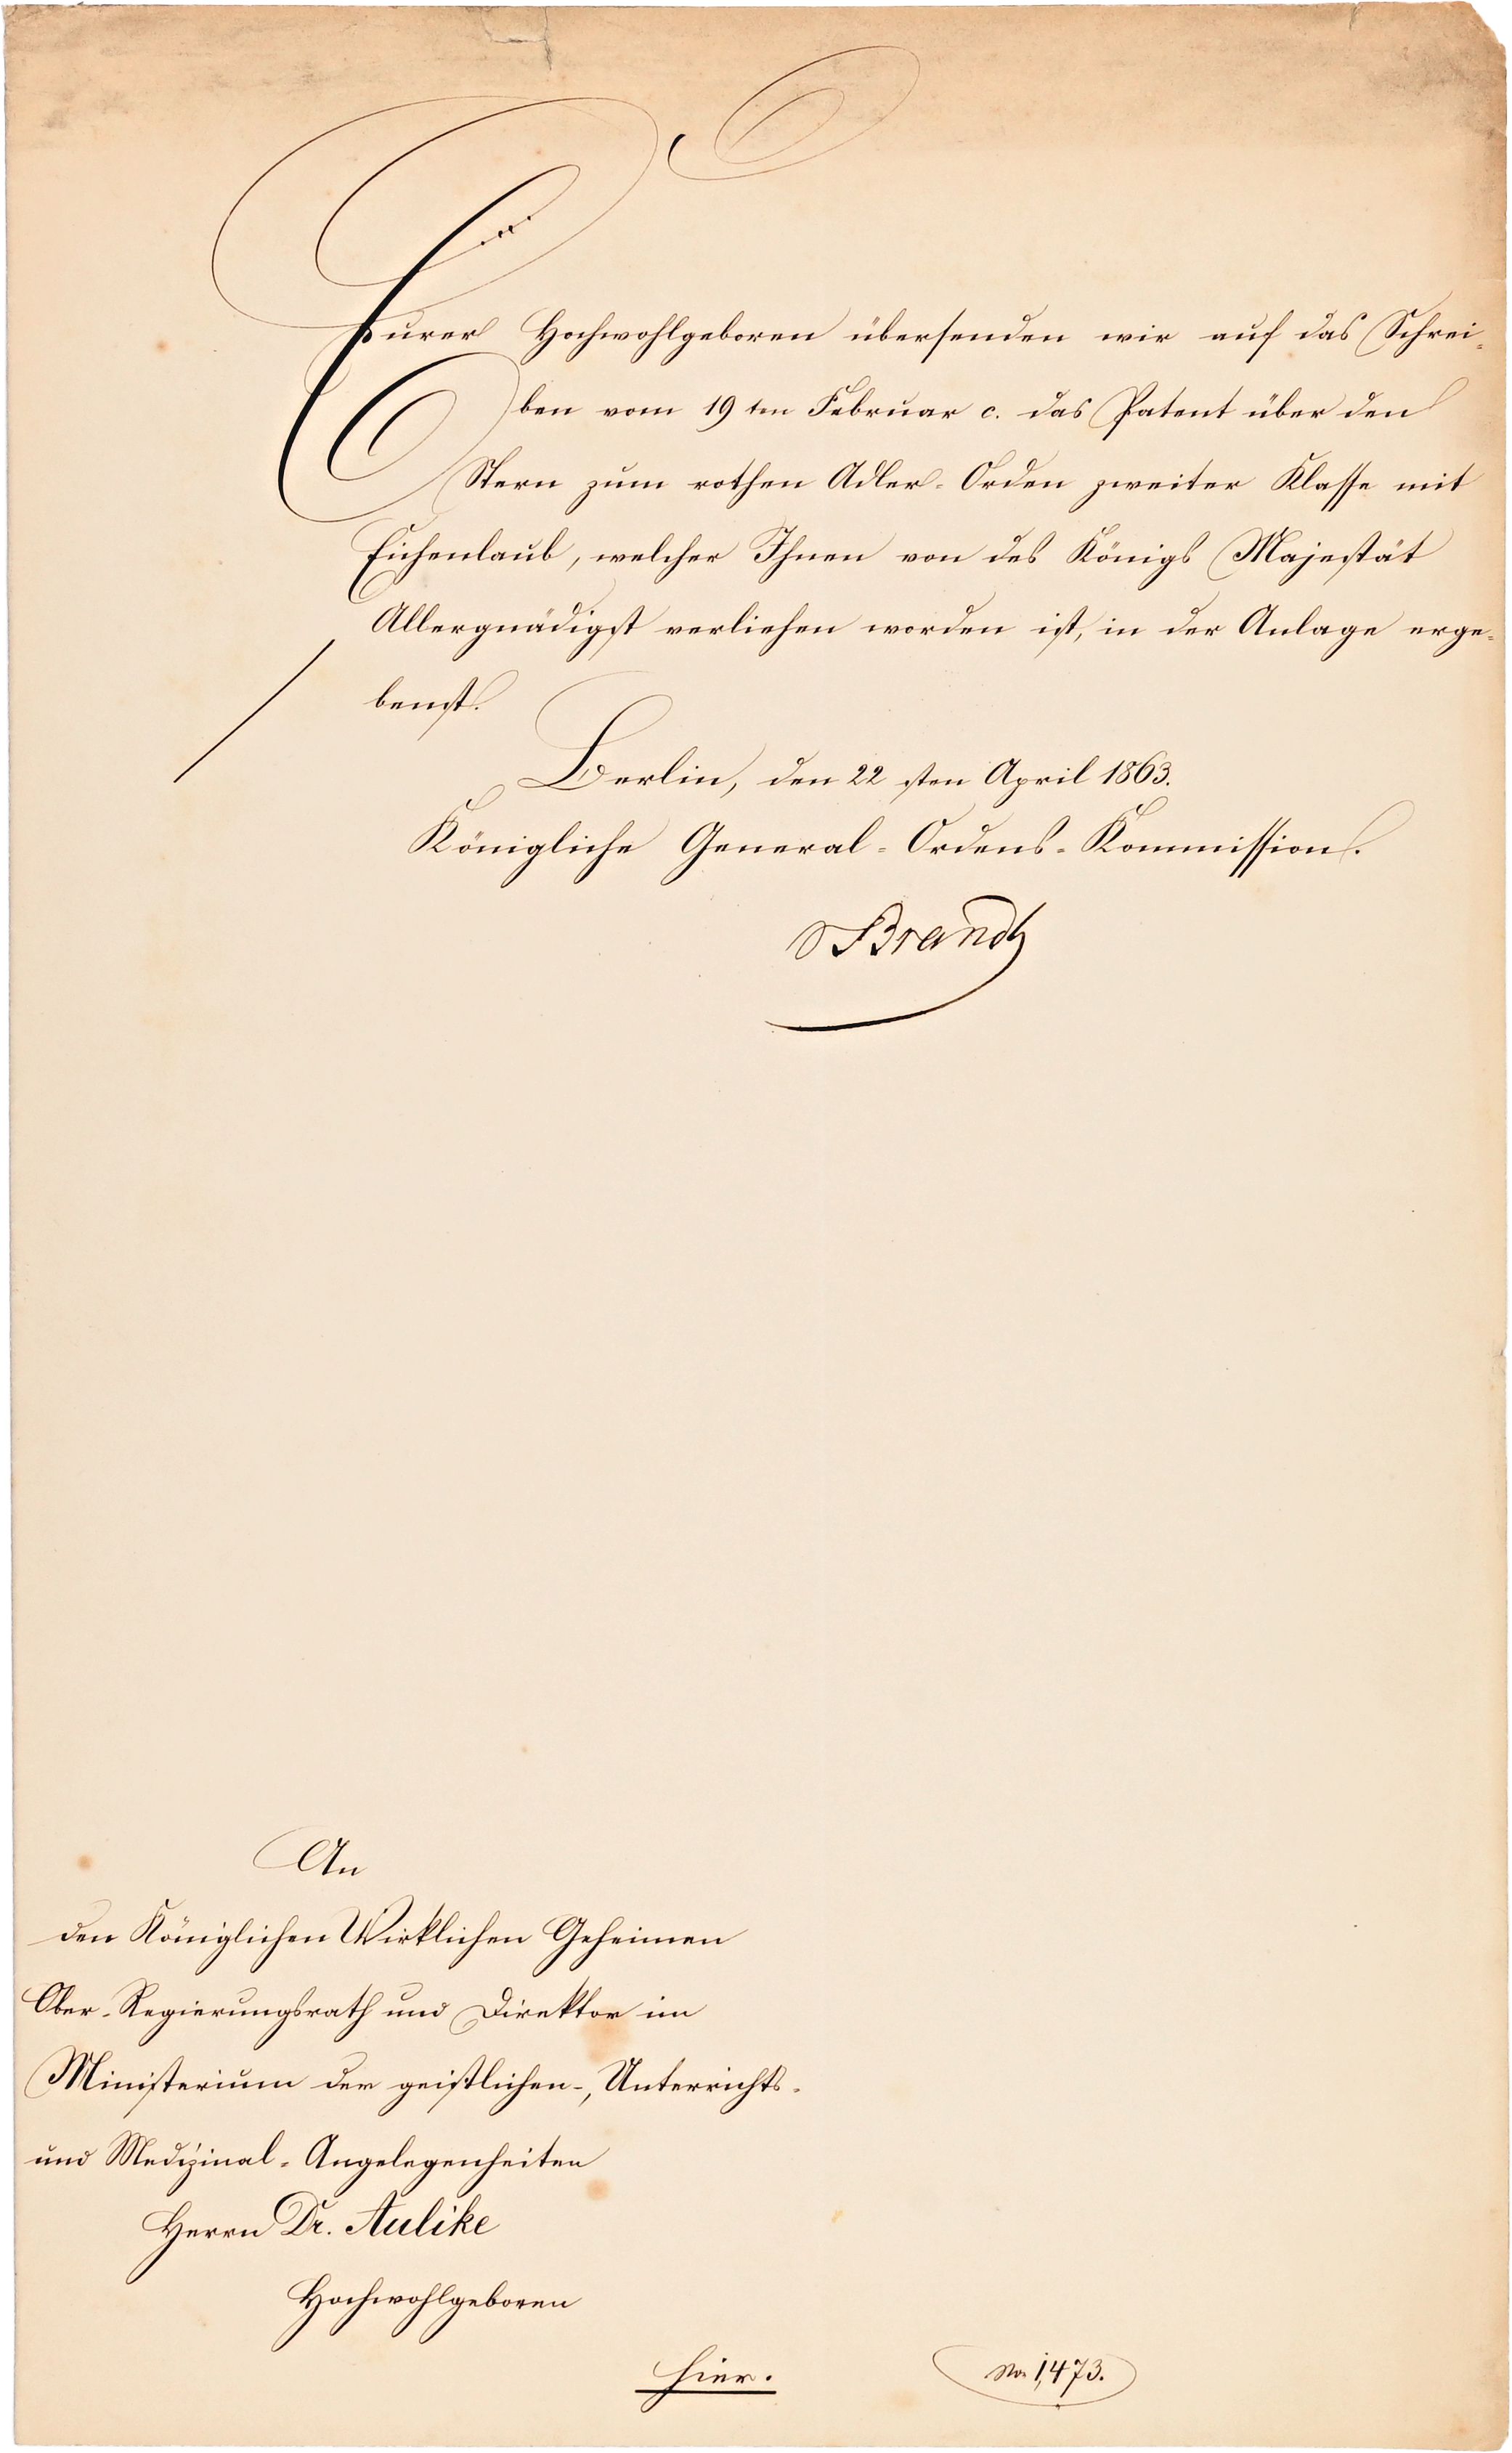 Eurer Hochwohlgeboren übersenden wir auf das Schrei-
ben vom 19ten Februar c. das Patent über den
Stern zum rothen Adler-Orden zweiter Klasse mit
Eichenlaub, welcher Ihnen von des Königs Majestät
Allergnädigst verliehen worden ist, in der Anlage erge-
benst.
Berlin, den 22sten April 1863.
Königliche General-Ordens-Kommission.
v Brandt
An
den Königlichen Wirklichen Geheimen
Ober-Regierungsrath und Direktor im
Ministerium der geistlichen-, Unterrichts-
und Medizinal-Angelegenheiten
Herrn Dr. Aulike
Hochwohlgeboren
hier.
No 1,473.